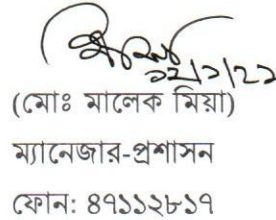 ১২/১/২১
(মোঃ মালেক মিয়া)
ম্যানেজার-প্রশাসন
ফোন: ৪৭১১২৮১৭